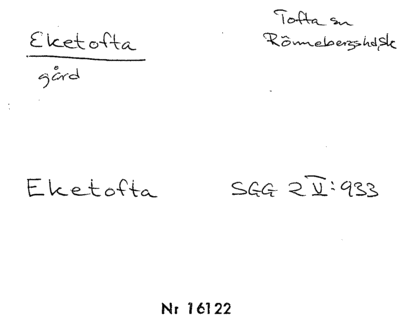 Eketofta
gård
Tofta sn
Rönnebergshd, Sk
Eketofta
SGG 2 V:933
Nr 16122